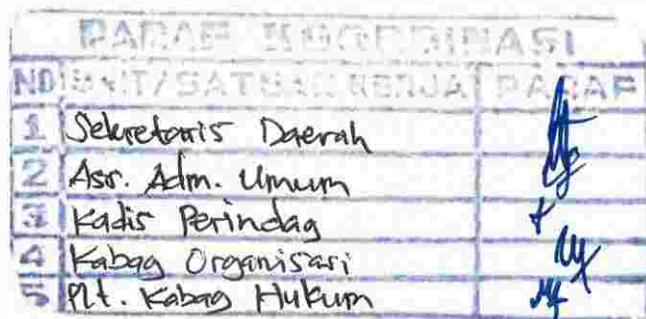 PARAF KOORDINASI
NO UNIT/SATUAN KERJA PARAF
1 Sekretaris Daerah
2 Ass. Adm. Umum
3 Kadis Perindag
4 Kabag Organisasi
5 Plt. Kabag Hukum